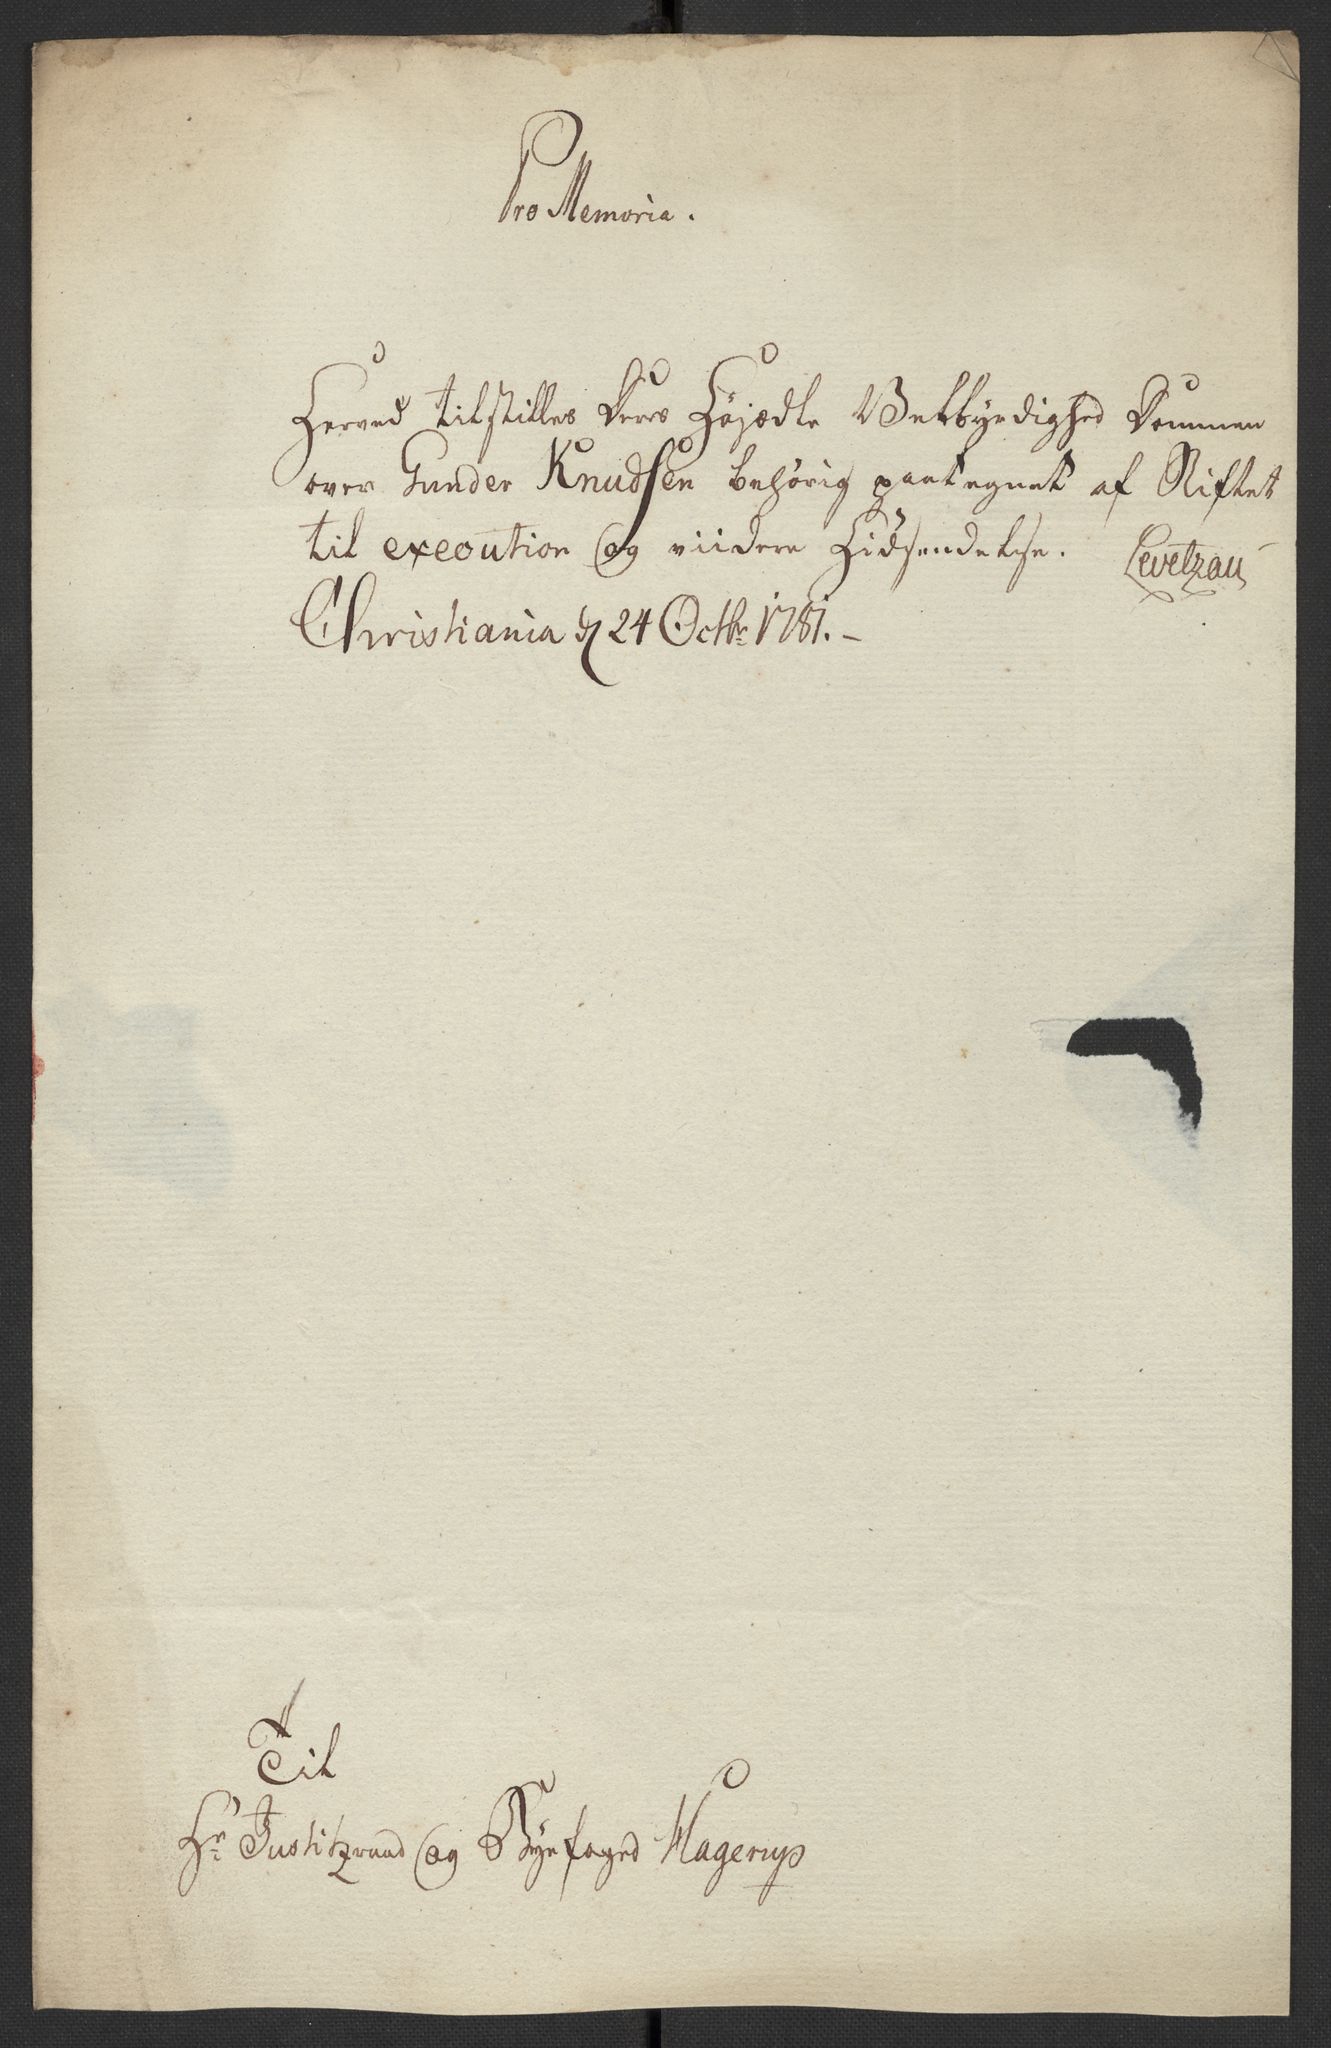 Pro Memoria.
Herved tilstilles Deres Höjædle Velbyrdighed Dommen
over Gunder Knudsen behörig paategnet af Stiftet
til execution og viidere Hidsendelse.
Levetzau
Christiania d 24 Octbr 1781.-
Til
Hr Justitzraad og Byefoged Hagerup